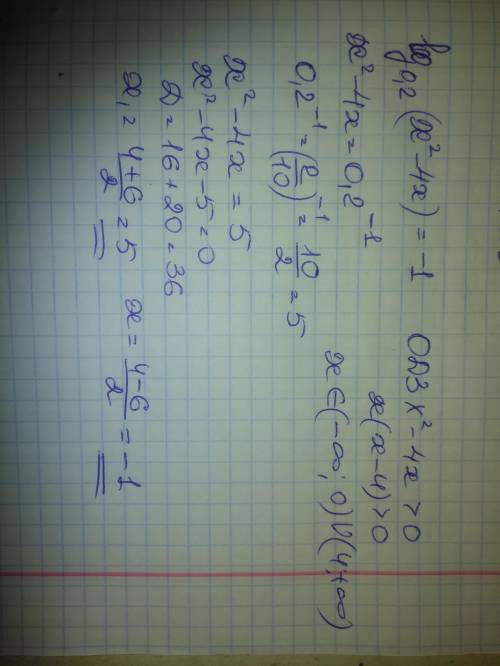 log₀,₂(x²-4x) = -1 ОДЗ x²-4x>0
x²-4x=0,2⁻¹ x(x-4)>0
0,2⁻¹ = (2/10)⁻¹ = 10/2 = 5 x∈(-∞; 0)∪(4;+∞)
x²-4x = 5
x²-4x-5=0
D=16+20=36
x₁ = (4+6)/2 = 5 x = (4-6)/2 = -1